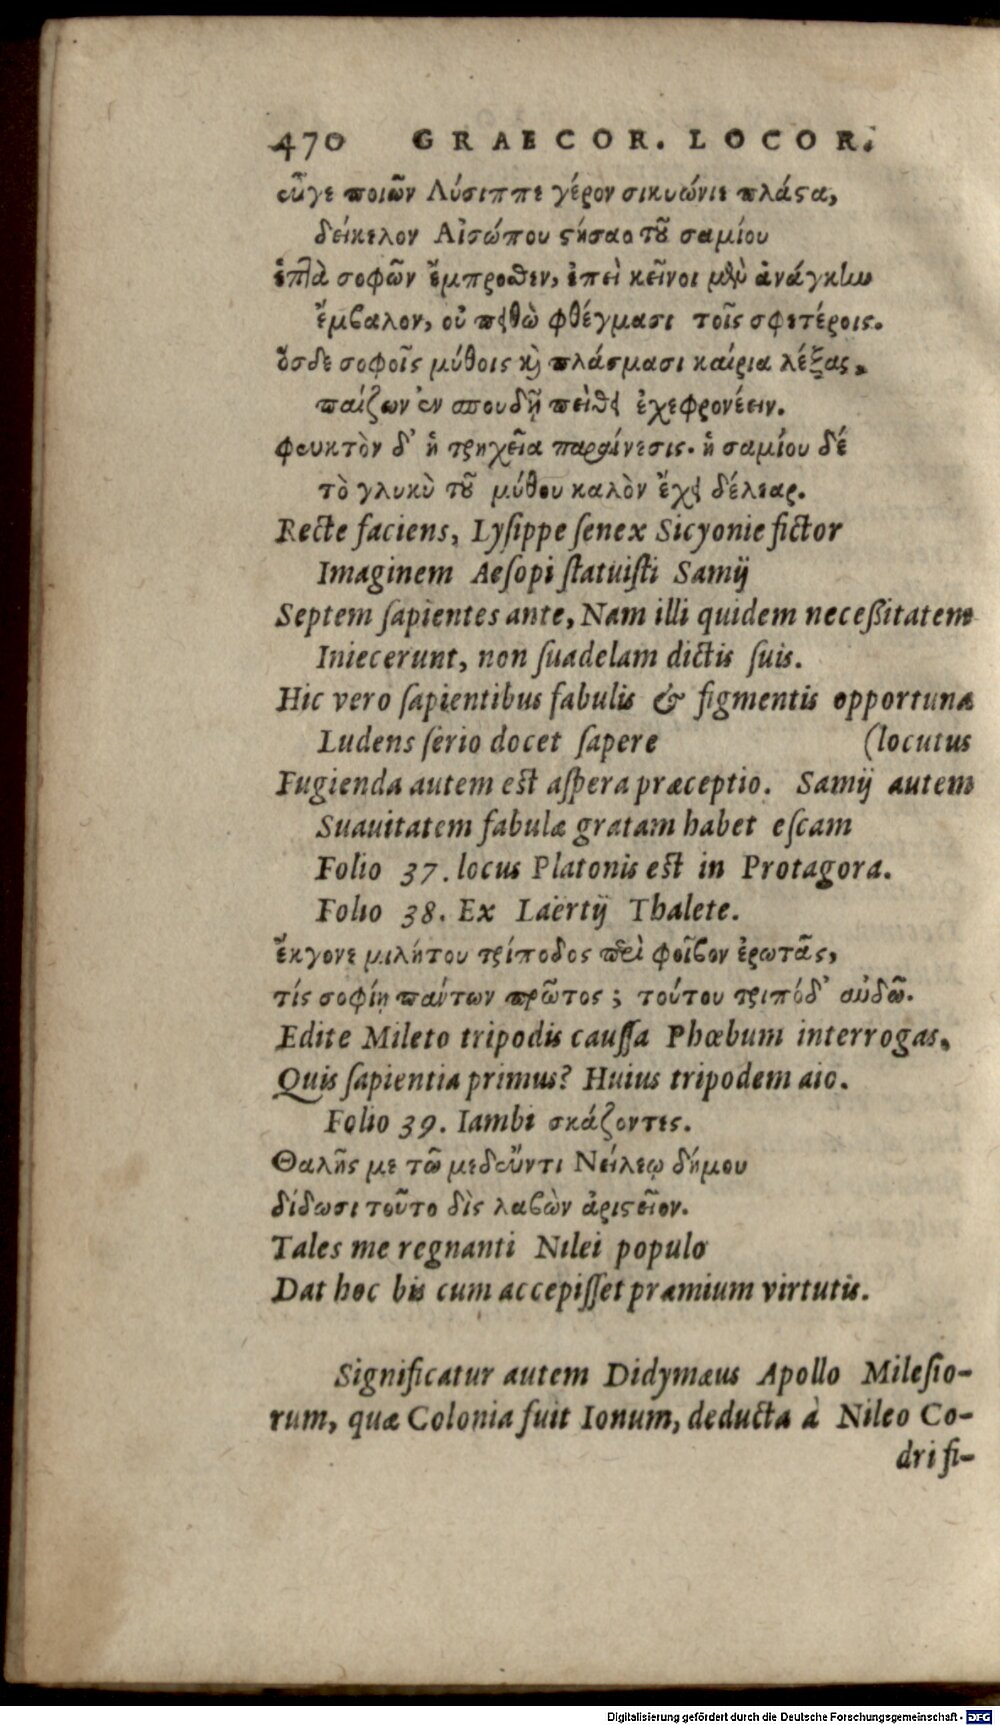 470 GRAECOR. LOCOR.
εὖγε ποιῶν Λύσιππε γέρον σικυώνιε πλάστα,
δείκελον Αἰσώπου στήσαο τοῦ σαμίου
ἑπτὰ σοφῶν ἔμπροσθεν, ἐπεὶ κεῖνοι μὲν ἀνάγκην
ἔμβαλον, οὐ πειθὼ φθέγμασι τοῖς σφετέροις.
ὅσδε σοφοῖς μύθοις καὶ πλάσμασι καίρια λέξας,
παίζων ἐν σπουδῇ πείθει ἐχεφρονέειν.
φευκτὸν δ' ἡ τρηχεῖα παραίνεσις. ἡ σαμίου δέ
τὸ γλυκὺ τοῦ μύθου καλὸν ἔχει δέλεαρ.
Recte faciens, Lyſippe ſenex Sicyonie fictor
Imaginem Aeſopi ſtatuiſti Samij
Septem ſapientes ante, Nam illi quidem neceßitatem
Iniecerunt, non ſuadelam dictis ſuis.
Hic vero ſapientibus fabulis & figmentis opportuna
Ludens ſerio docet ſapere (locutus
Fugienda autem est aſpera præceptio. Samij autem
Suauitatem fabulæ gratam habet eſcam
Folio 37. locus Platonis est in Protagora.
Folio 38. Ex Laërtij Thalete.
ἔκγονε μιλήτου τρίποδος περὶ φοῖβον ἐρωτᾶς,
τίς σοφίῃ πάντων πρῶτος; τούτου τριπόδ' αὐδῶ.
Edite Mileto tripodis cauſſa Phœbum interrogas.
Quis ſapientia primus? Huius tripodem aio.
Folio 39. Iambi σκάζοντες.
Θαλῆς με τῶ μεδεῦντι Νείλεῳ δήμου
δίδωσι τοῦτο δὶς λαβὼν ἀριστεῖον.
Tales me regnanti Nilei populo
Dat hoc bis cum accepiſſet præmium virtutis.
Significatur autem Didymæus Apollo Mileſio-
rum, quæ Colonia fuit Ionum, deducta à Nileo Co-
dri fi-
Digitalisierung gefördert durch die Deutsche Forschungsgemeinschaft - DFG